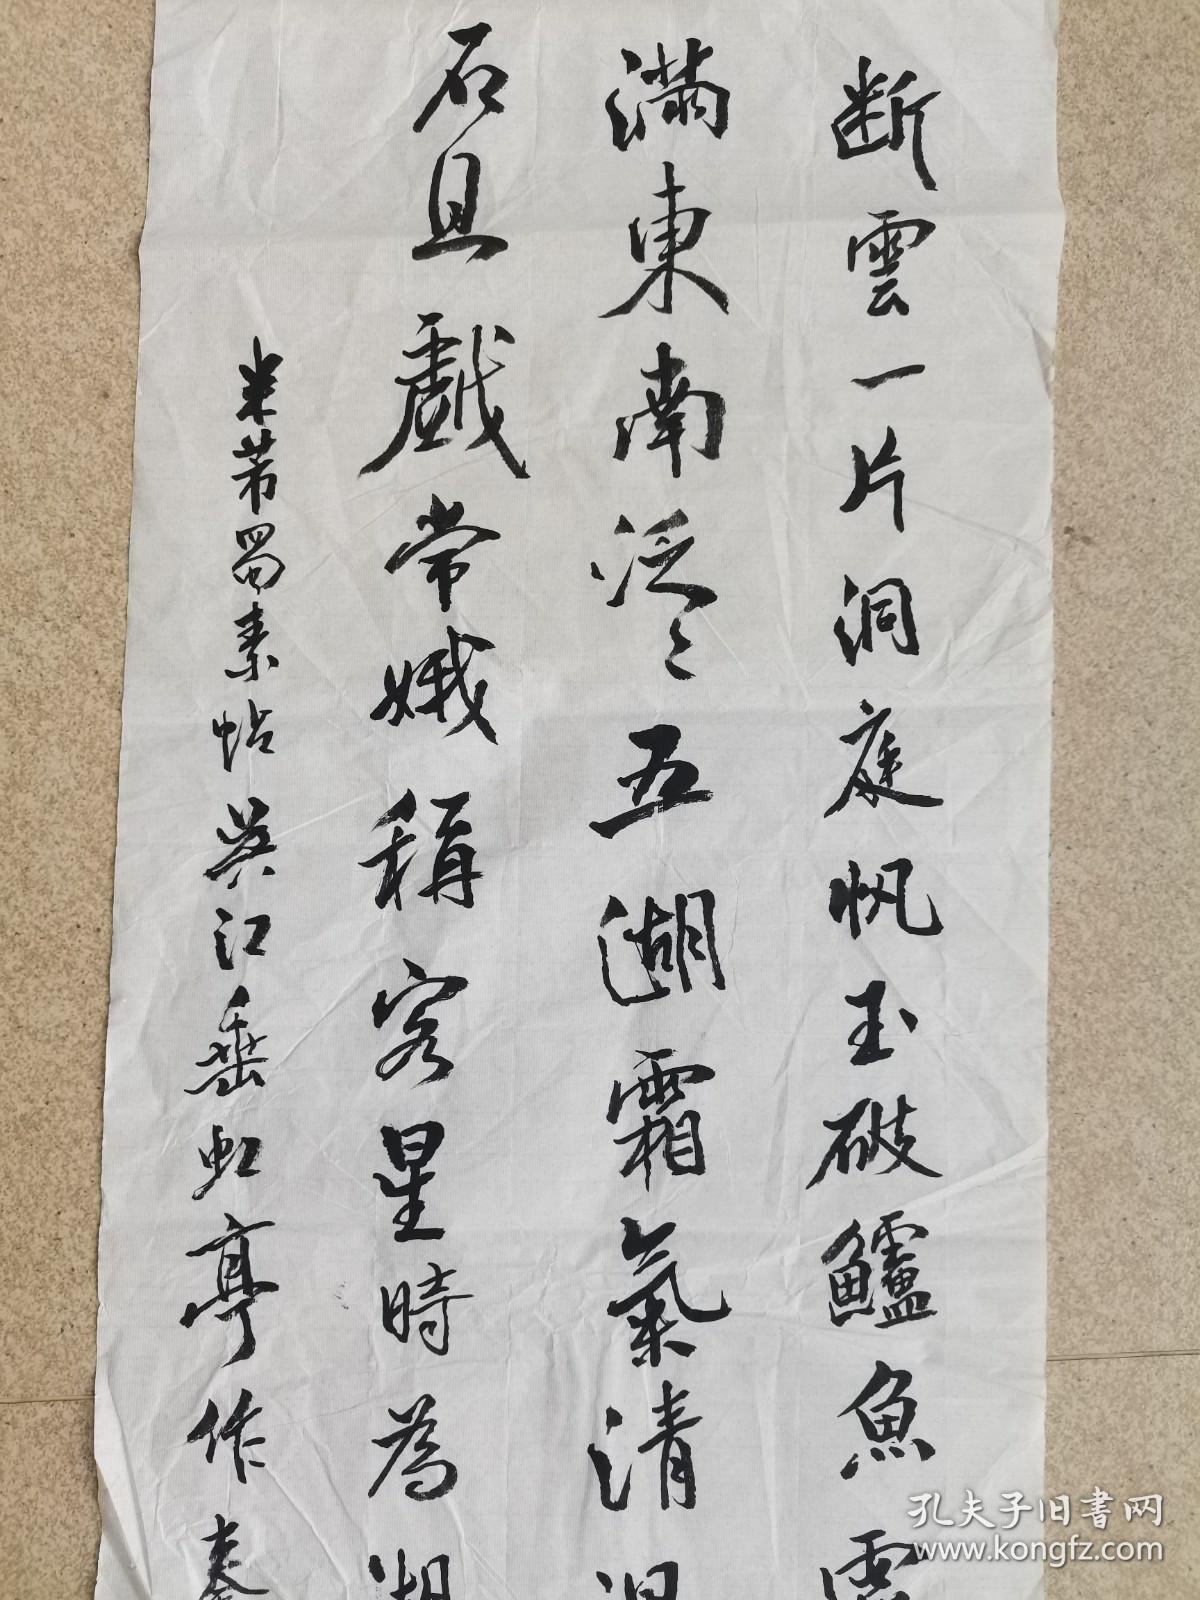 断雲一片洞庭帆玉破鱸魚
滿東南泛〻五湖霜氣清
石且戲常娥稱客星時為湖
米芾蜀素帖吳江垂虹亭作
孔夫子旧书网
www.kongfz.com